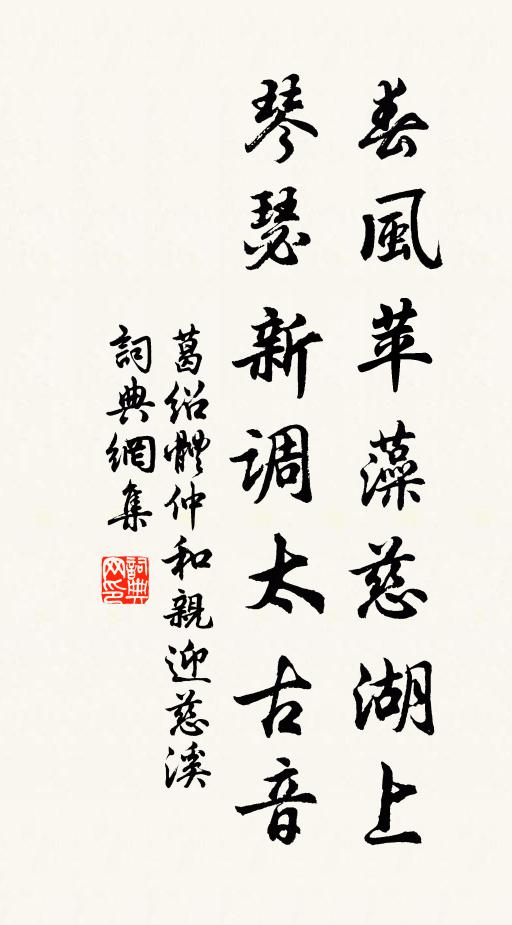 春風苹藻慈湖上
琴瑟新調太古音
葛绍體仲和親迎慈溪
詞典網集
詞典网印